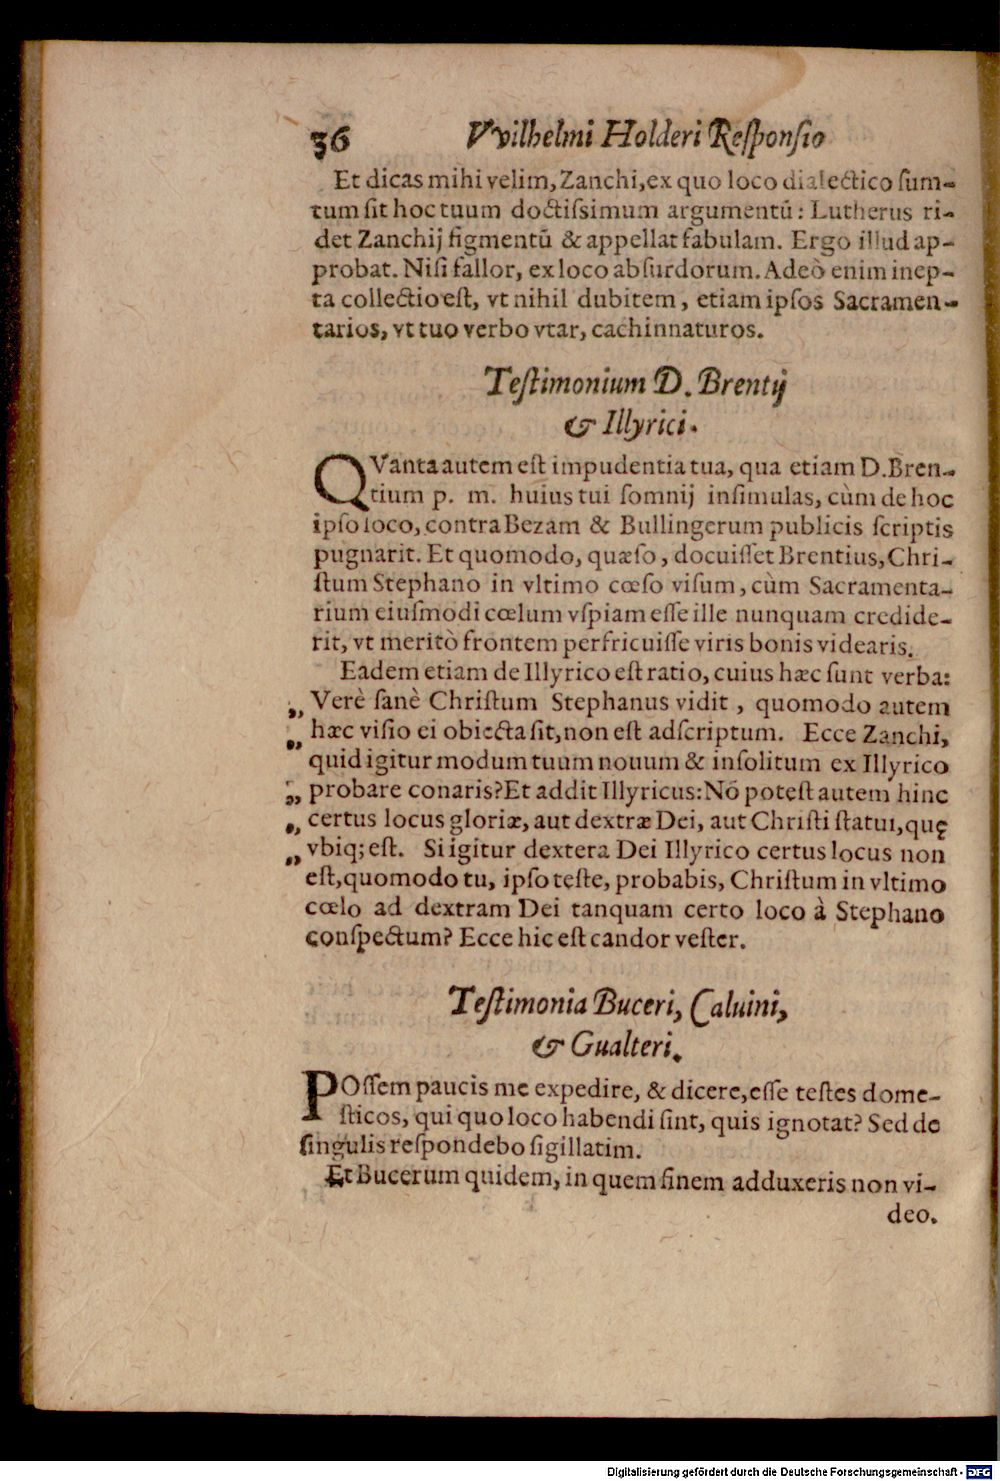 36 VVilhelmi Holderi Reſponſio
Et dicas mihi velim, Zanchi, ex quo loco dialectico ſum-
tum ſit hoc tuum doctiſsimum argumentū: Lutherus ri-
det Zanchij figmentū & appellat fabulam. Ergo illud ap-
probat. Niſi fallor, ex loco abſurdorum. Adeò enim inep-
ta collectio eſt, vt nihil dubitem, etiam ipſos Sacramen-
tarios, vt tuo verbo vtar, cachinnaturos.
Teſtimonium D. Brentij
& Illyrici.
QVanta autem eſt impudentia tua, qua etiam D. Bren-
tium p. m. huius tui ſomnij inſimulas, cùm de hoc
ipſo loco, contra Bezam & Bullingerum publicis ſcriptis
pugnarit. Et quomodo, quæſo, docuiſſet Brentius, Chri-
ſtum Stephano in vltimo cœlo viſum, cùm Sacramenta-
rium eiuſmodi cœlum vſpiam eſſe ille nunquam credide-
rit, vt meritò frontem perfricuiſſe viris bonis videaris.
Eadem etiam de Illyrico eſt ratio, cuius hæc ſunt verba:
„ Verè ſanè Chriſtum Stephanus vidit, quomodo autem
„ hæc viſio ei obiecta ſit, non eſt adſcriptum. Ecce Zanchi,
quid igitur modum tuum nouum & inſolitum ex Illyrico
„ probare conaris? Et addit Illyricus: Nō poteſt autem hinc
„ certus locus gloriæ, aut dextræ Dei, aut Chriſti ſtatui, quę
„ vbiq; eſt. Si igitur dextera Dei Illyrico certus locus non
eſt, quomodo tu, ipſo teſte, probabis, Chriſtum in vltimo
cœlo ad dextram Dei tanquam certo loco à Stephano
conſpectum? Ecce hic eſt candor veſter.
Teſtimonia Buceri, Caluini,
& Gualteri.
POſſem paucis me expedire, & dicere, eſſe teſtes dome-
ſticos, qui quo loco habendi ſint, quis ignotat? Sed de
ſingulis reſpondebo ſigillatim.
Et Bucerum quidem, in quem finem adduxeris non vi-
deo.
Digitalisierung gefördert durch die Deutsche Forschungsgemeinschaft - DFG